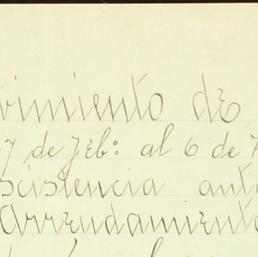 vimiento de
7 de Feb: al 6 de
scistencia ant
Arrendamiento